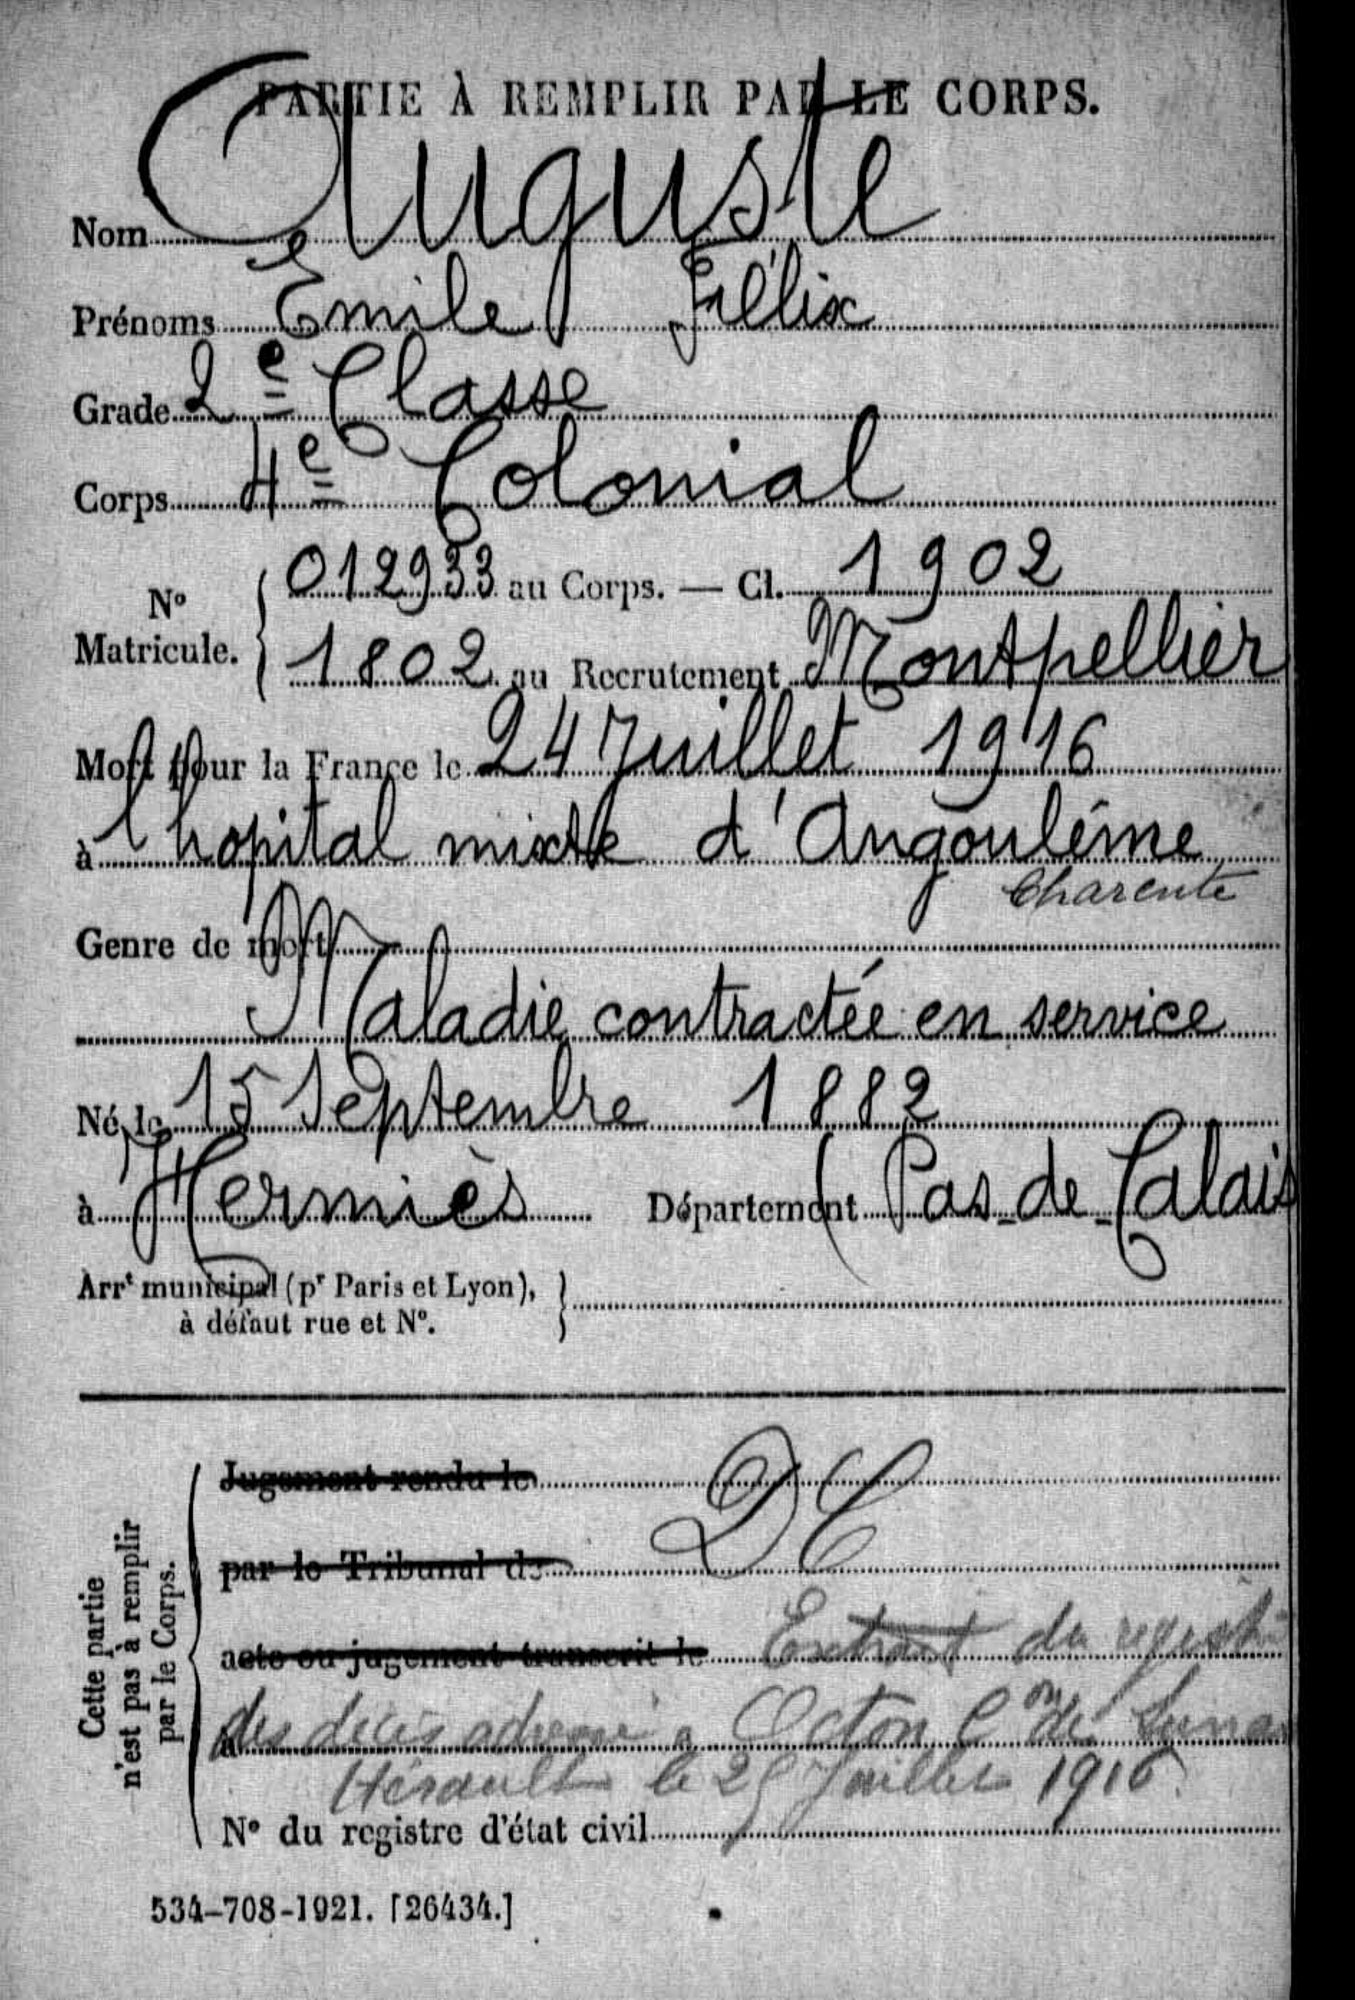 PARTIE À REMPLIR PAR LE CORPS.
Nom Auguste
Prénoms Emile Féllix
Grade 2e Classe
Corps 4e Colonial
No Matricule. { 012933 au Corps. — Cl. 1902
1802 au Recrutement Montpellier
Mort pour la France le 24 Juillet 1916
à l'hopital mixte d'Angoulême
Charente
Genre de mort
Maladie contractée en service
Né le 15 Septembre 1882
à Hermiès Département (Pas-de-Calais
Arrt municipal (pr Paris et Lyon), }
à défaut rue et No.
Cette partie
n'est pas à remplir
par le Corps.
Jugement rendu le D C
par le Tribunal de
acte ou jugement transcrit le Extrait du registre
à des décès adressé à Octon Con de Lunas
Hérault le 25 Juillet 1916
No du registre d'état civil
534-708-1921. [26434.]